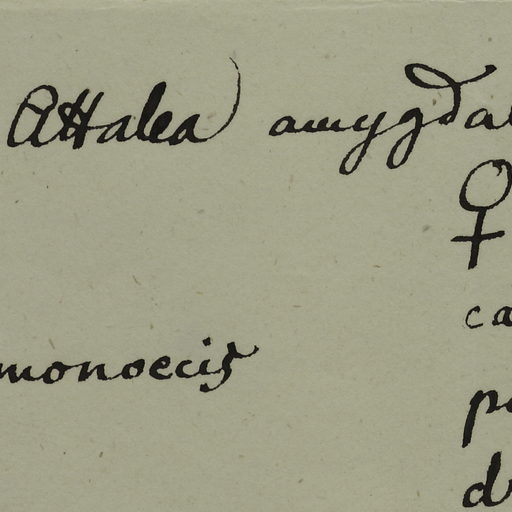 Attalea amygdal
♀
ca
monoecis
po
d